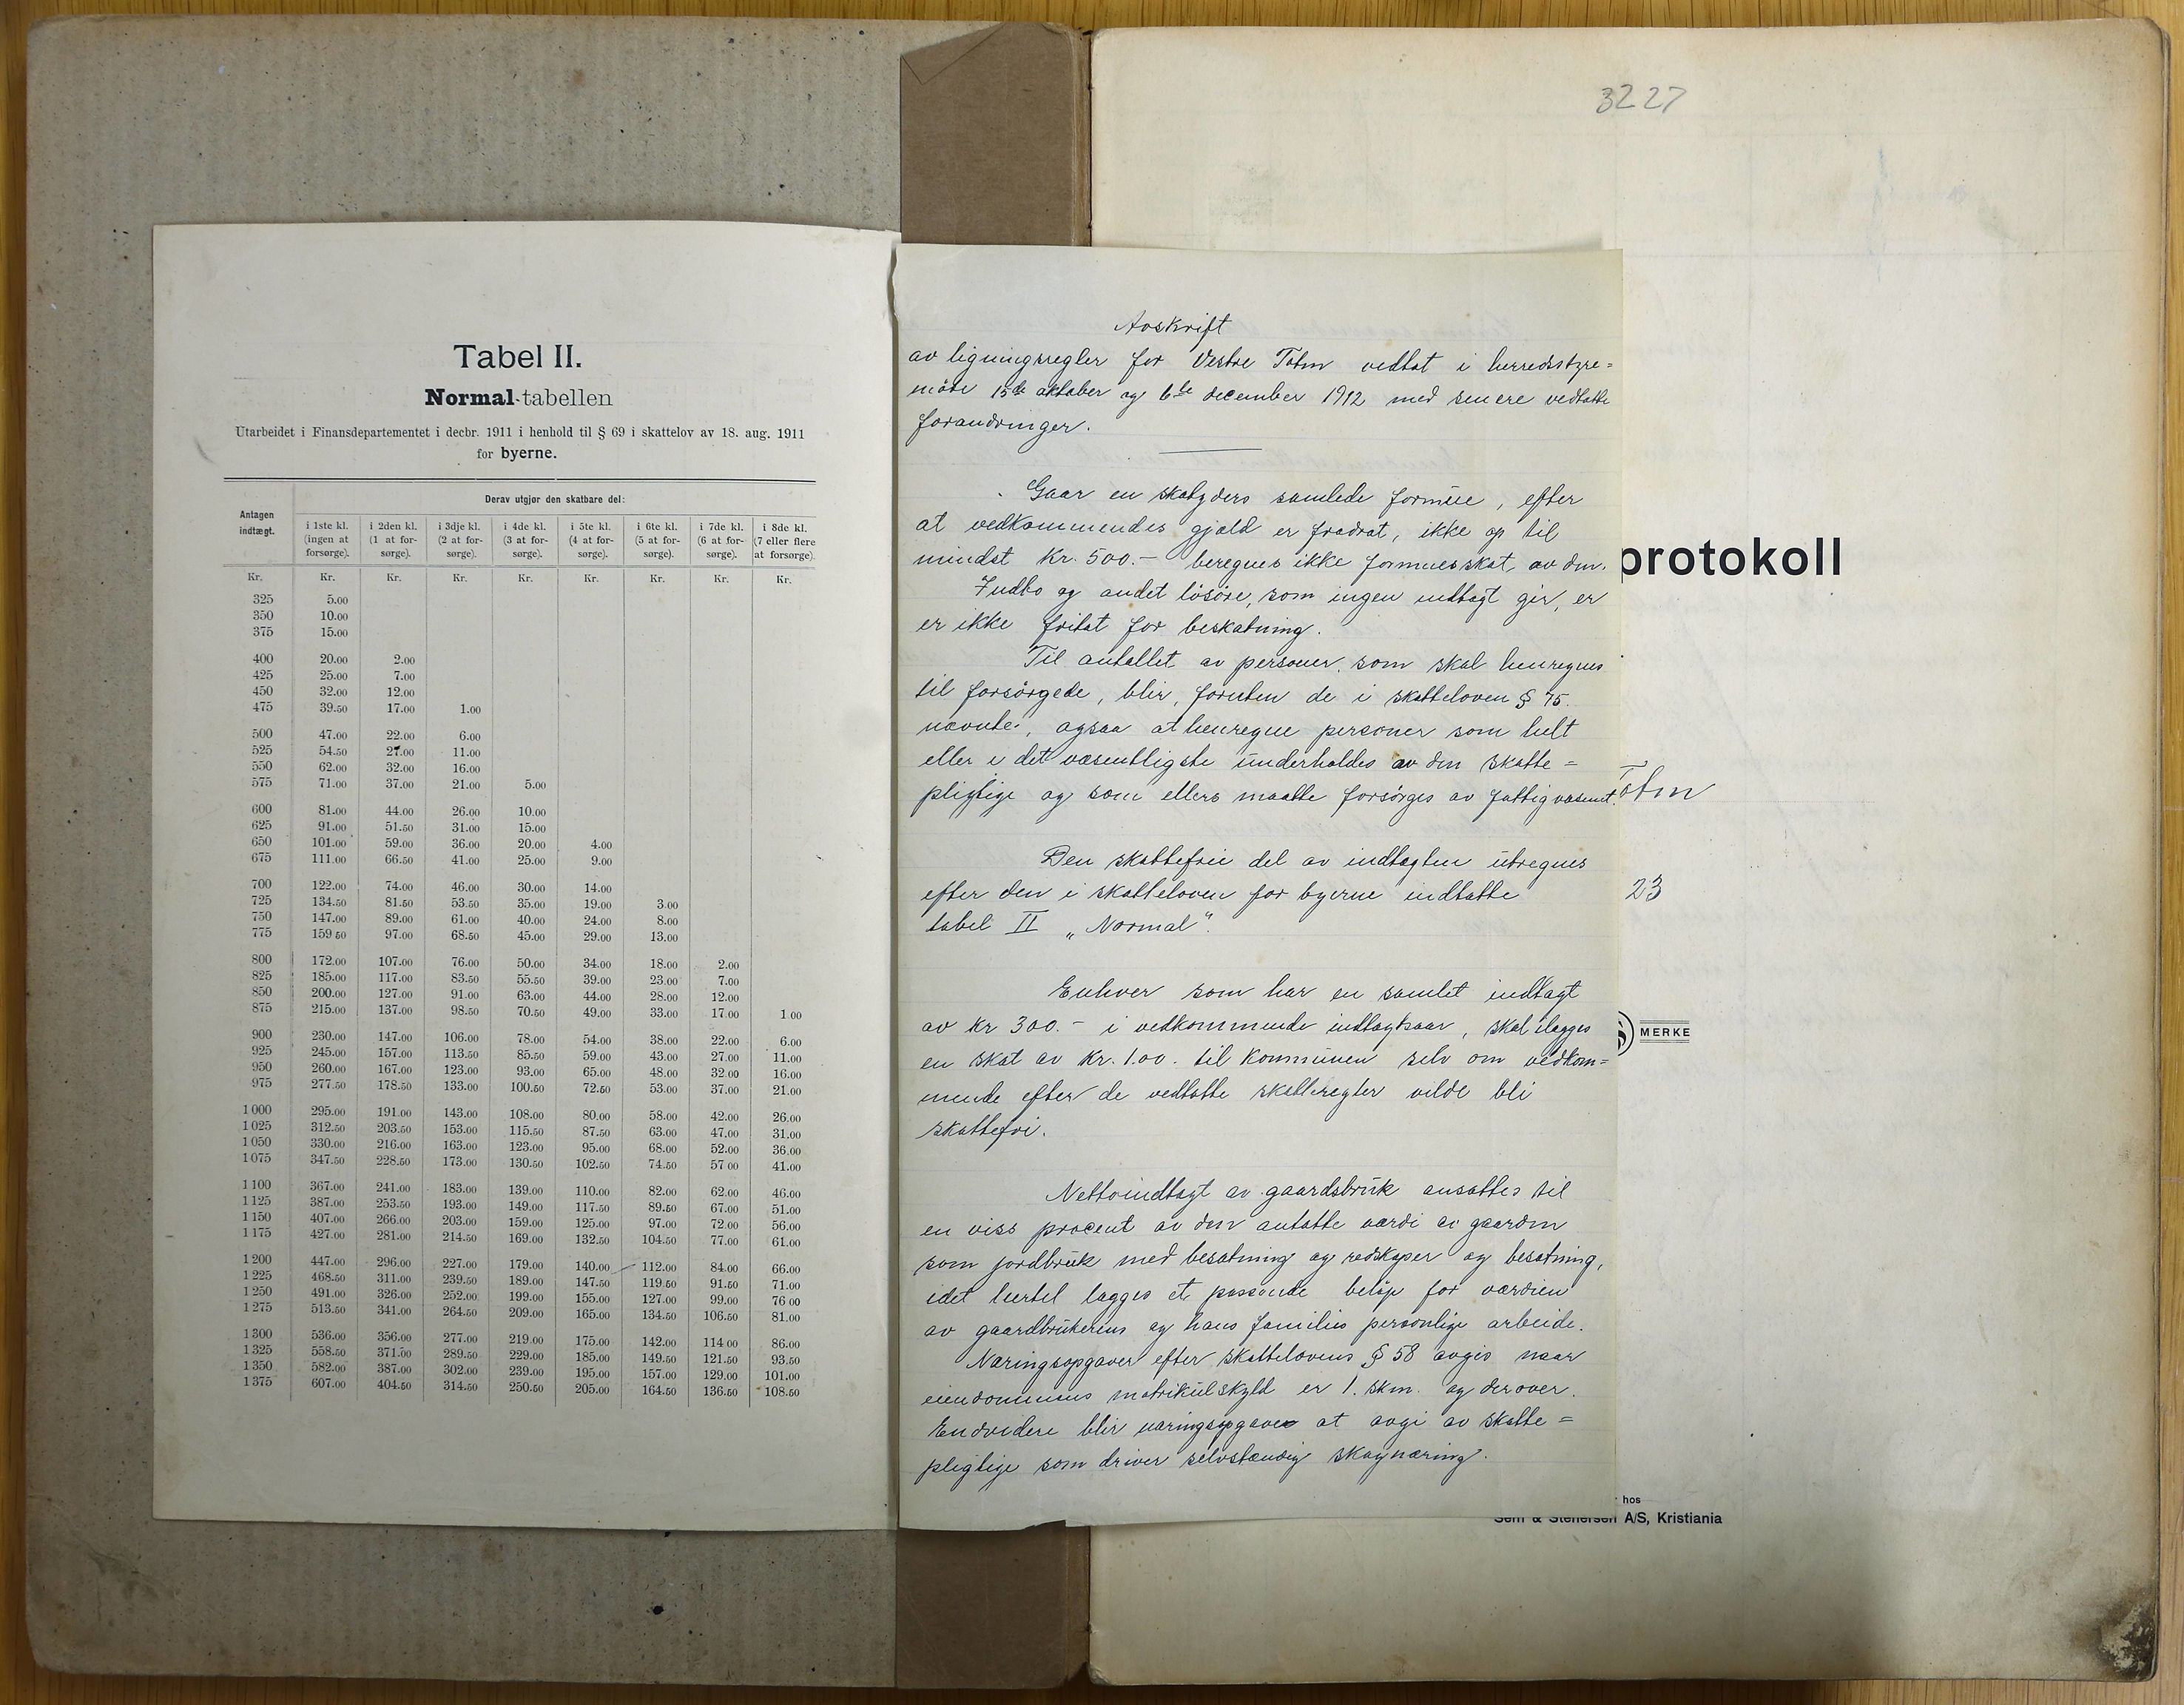 3227
Tabel II.
Normal-tabellen
Utarbeidet i Finansdepartementet i decbr. 1911 i henhold til § 69 i skattelov av 18. aug. 1911
for byerne.
Antagen indtægt. Derav utgjør den skatbare del:
i 1ste kl. (ingen at forsørge). i 2den kl. (1 at forsørge). i 3dje kl. (2 at forsørge). i 4de kl. (3 at forsørge). i 5te kl. (4 at forsørge). i 6te kl. (5 at forsørge). i 7de kl. (6 at forsørge). i 8de kl. (7 eller flere at forsørge).
Kr. Kr. Kr. Kr. Kr. Kr. Kr. Kr. Kr.
325 5.00
350 10.00
375 15.00
400 20.00 2.00
425 25.00 7.00
450 32.00 12.00
475 39.50 17.00 1.00
500 47.00 22.00 6.00
525 54.50 27.00 11.00
550 62.00 32.00 16.00
575 71.00 37.00 21.00 5.00
600 81.00 44.00 26.00 10.00
625 91.00 51.50 31.00 15.00
650 101.00 59.00 36.00 20.00 4.00
675 111.00 66.50 41.00 25.00 9.00
700 122.00 74.00 46.00 30.00 14.00
725 134.50 81.50 53.50 35.00 19.00 3.00
750 147.00 89.00 61.00 40.00 24.00 8.00
775 159 50 97.00 68.50 45.00 29.00 13.00
800 172.00 107.00 76.00 50.00 34.00 18.00 2.00
825 185.00 117.00 83.50 55.50 39.00 23.00 7.00
850 200.00 127.00 91.00 63.00 44.00 28.00 12.00
875 215.00 137.00 98.50 70.50 49.00 33.00 17.00 1 00
900 230.00 147.00 106.00 78.00 54.00 38.00 22.00 6.00
925 245.00 157.00 113.50 85.50 59.00 43.00 27.00 11.00
950 260.00 167.00 123.00 93.00 65.00 48.00 32.00 16.00
975 277.50 178.50 133.00 100.50 72.50 53.00 37.00 21.00
1 000 295.00 191.00 143.00 108.00 80.00 58.00 42.00 26.00
1 025 312.50 203.50 153.00 115.50 87.50 63.00 47.00 31.00
1 050 330.00 216.00 163.00 123.00 95.00 68.00 52.00 36.00
1 075 347.50 228.50 173.00 130.50 102.50 74.50 57 00 41.00
1 100 367.00 241.00 183.00 139.00 110.00 82.00 62.00 46.00
1 125 387.00 253.50 193.00 149.00 117.50 89.50 67.00 51.00
1 150 407.00 266.00 203.00 159.00 125.00 97.00 72.00 56.00
1 175 427.00 281.00 214.50 169.00 132.50 104.50 77.00 61.00
1 200 447.00 296.00 227.00 179.00 140.00 112.00 84.00 66.00
1 225 468.50 311.00 239.50 189.00 147.50 119.50 91.50 71.00
1 250 491.00 326.00 252.00 199.00 155.00 127.00 99.00 76 00
1 275 513.50 341.00 264.50 209.00 165.00 134.50 106.50 81.00
1 300 536.00 356.00 277.00 219.00 175.00 142.00 114 00 86.00
1 325 558.50 371.00 289.50 229.00 185.00 149.50 121.50 93.50
1 350 582.00 387.00 302.00 239.00 195.00 157.00 129.00 101.00
1 375 607.00 404.50 314.50 250.50 205.00 164.50 136.50 108.50
Avskrift
av ligningsregler for Vestre Totn vedtat i herredsstyre=
möte 15de oktober og 6te december 1912 med senere vedtatte
forandringer.
Gaar en skatyders samlede formue, efter
at vedkommendes gjæld er fradrat, ikke op til
mindst Kr. 500.- beregnes ikke formuesskat av den.
Indbo og andet lösöre, som ingen indtægt gir, er
er ikke fritat for beskatning.
Til antallet av personer som skal henregnes
til forsörgede, blir, foruten de i skatteloven § 75.
nævnte, ogsaa at henregne personer som helt
eller i det væsentligste underholdes av den skatte=
pligtige og som ellers maatte forsörges av fattigvæsenet.
Den skattefrie del av indtægten utregnes
efter den i skatteloven for byerne indtatte
tabel II „Normal".
Enhver som har en samlet indtægt
av Kr 300.- i vedkommende indtægtsaar, skal ilægges
en skat av Kr. 1.00. til kommunen selv om vedkom=
mende efter de vedtatte skatteregler vilde bli
skattefri.
Nettoindtægt av gaardsbruk ansættes til
en viss procent av den antatte værdi av gaarden
som jordbruk med besætning og redskaper og besætning,
idet hertil lægges et passende belöp for værdien
av gaardbrukerens og hans families personlige arbeide.
Næringsopgaver efter skattelovens § 58 avgis naar
eiendommens matrikulskyld er 1. skm. og derover.
Endvidere blir næringsopgaver at avgi av skatte=
pligtige som driver selvstændig skognæring.
protokoll
Totn
23
MERKE
hos
Sem & Stenersen A/S, Kristiania